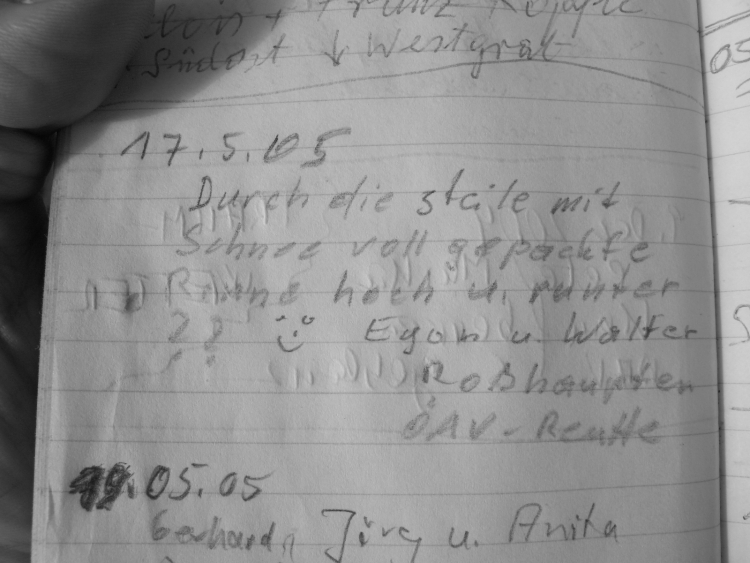 Südost ↓ Westgrat
17.5.05
Durch die steile mit
Schnee voll gepackte
Rinne hoch u. runter
?? Egon u. Walter
Roßhaupten
ÖAV - Reutte
19.05.05
Gerhard, Jörg u. Anita
05